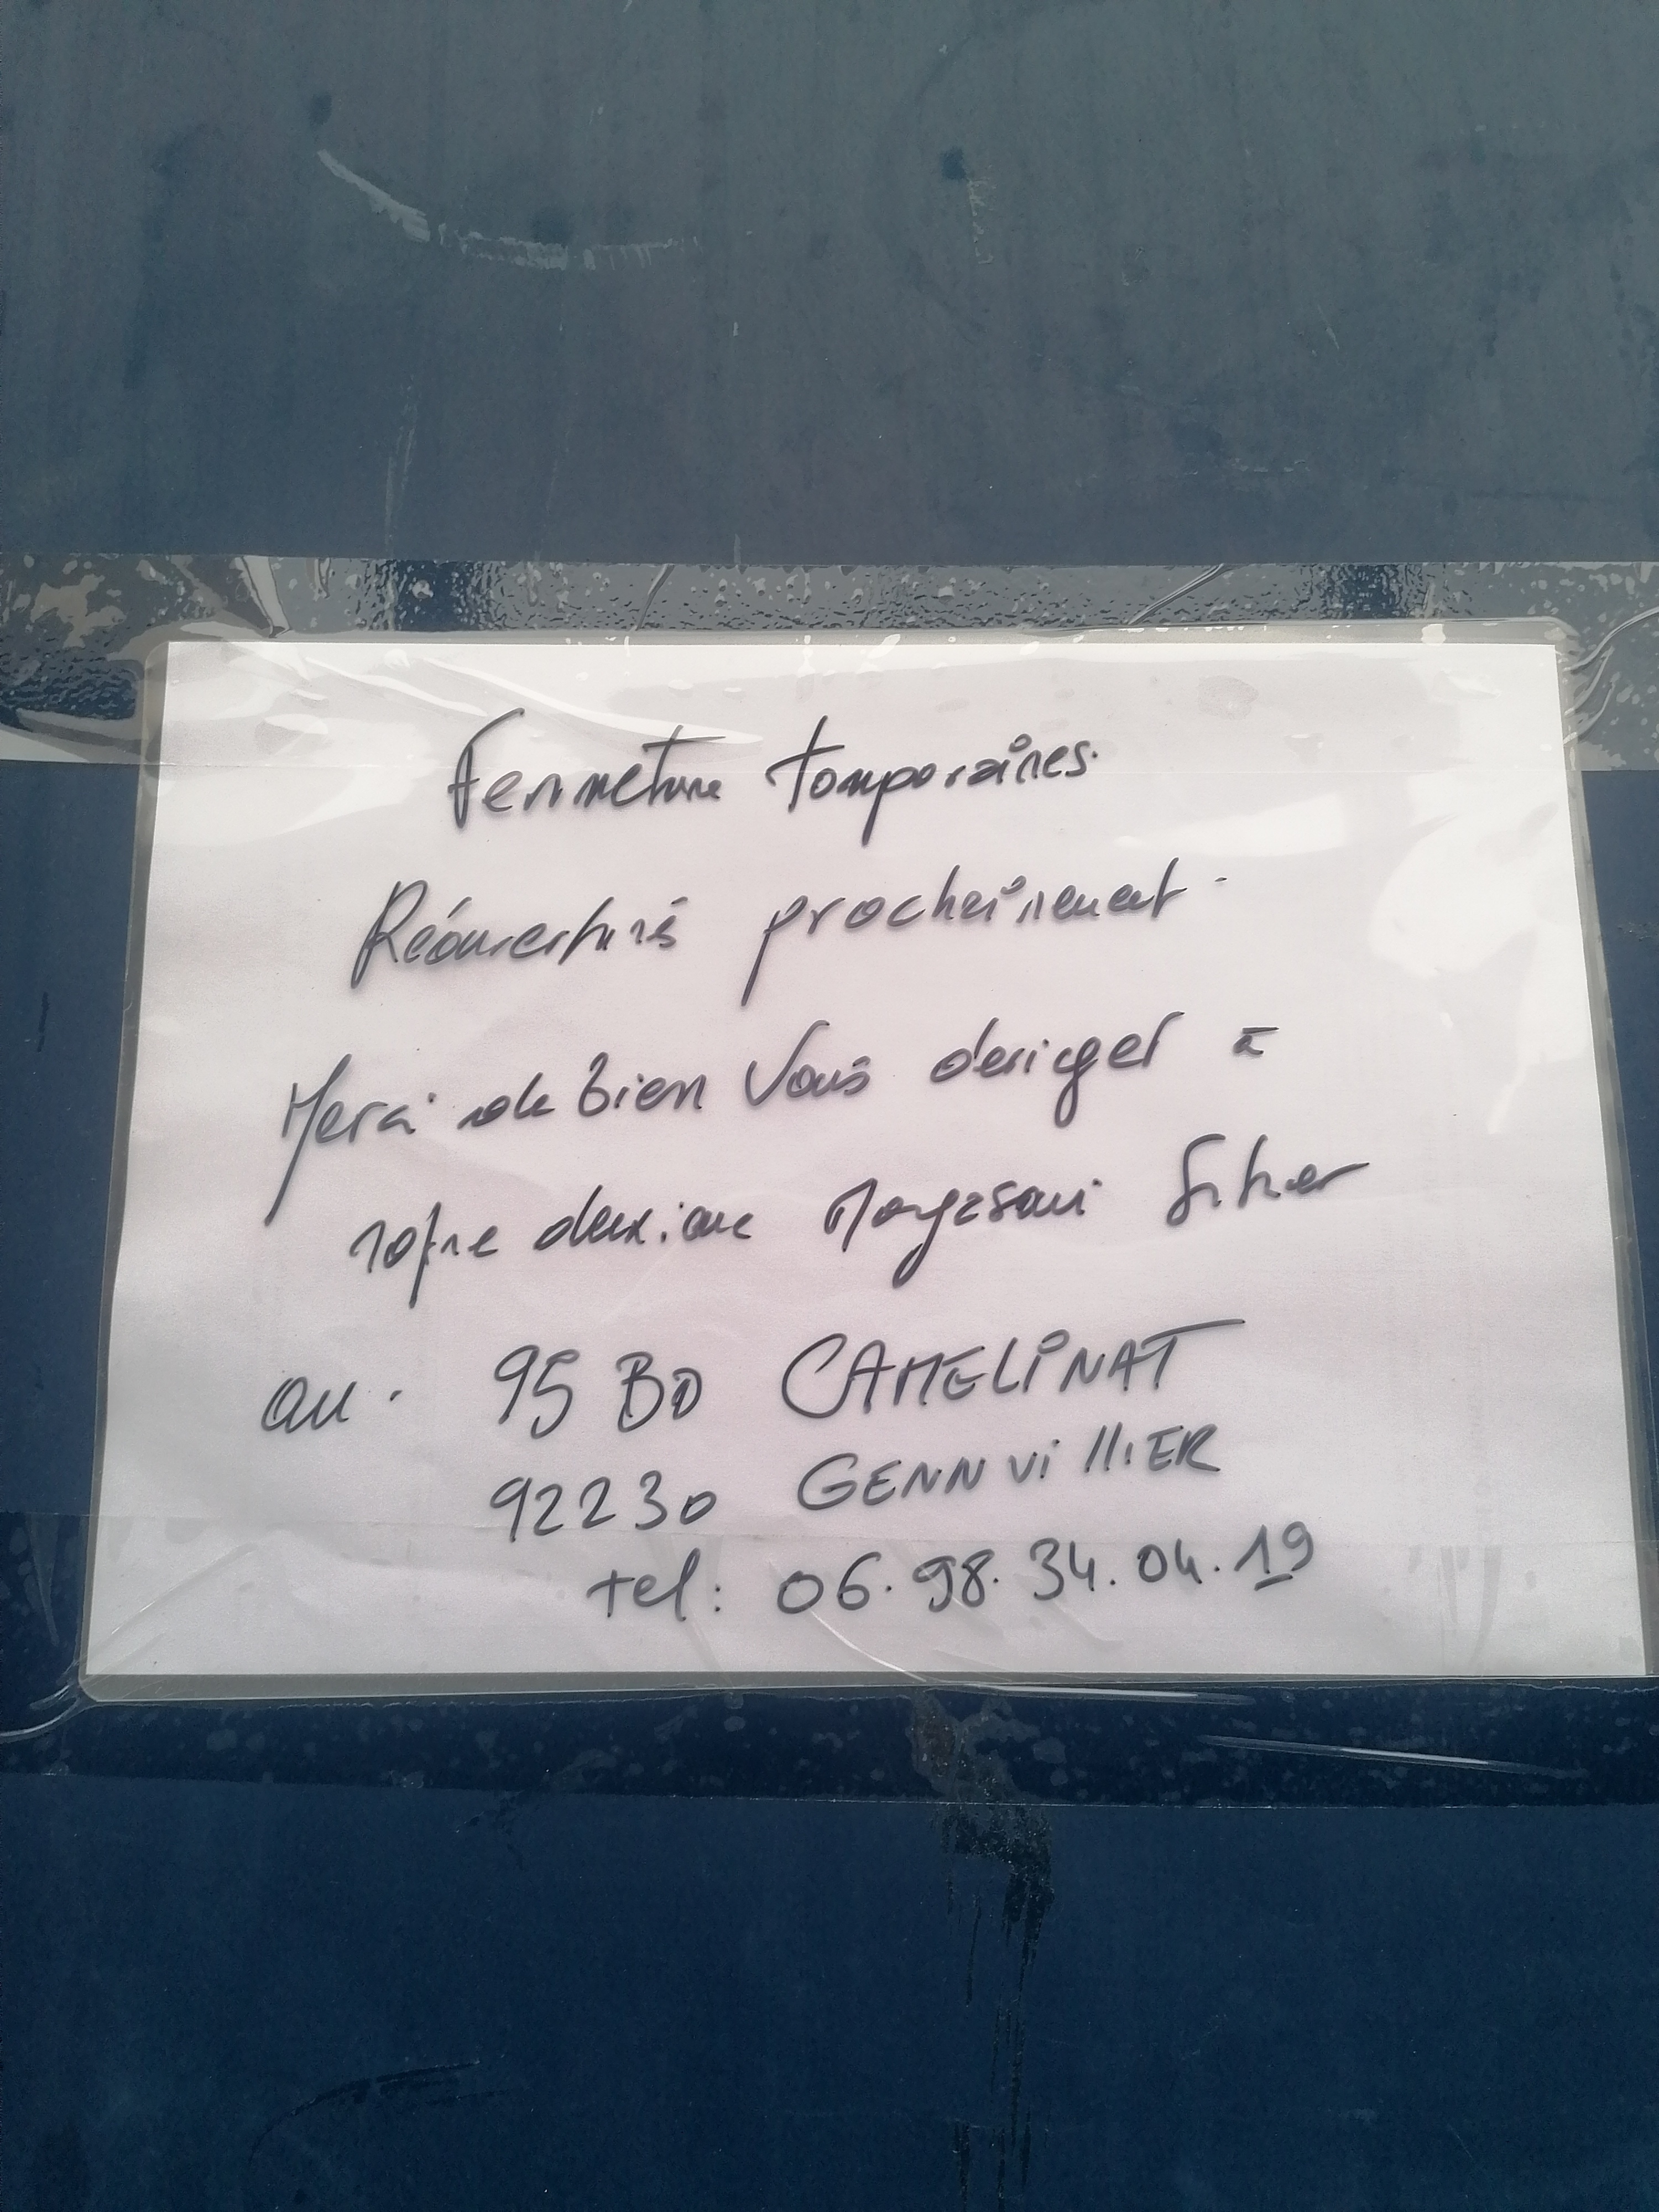 Fermeture temporaires.
Réouvertures prochainement.
Merci de bien Vous deriger à
notre deuxieme Magasain
au. 95 BD CAMELINAT
92230 GENNVIllIER
tel: 06.98.34.04.19